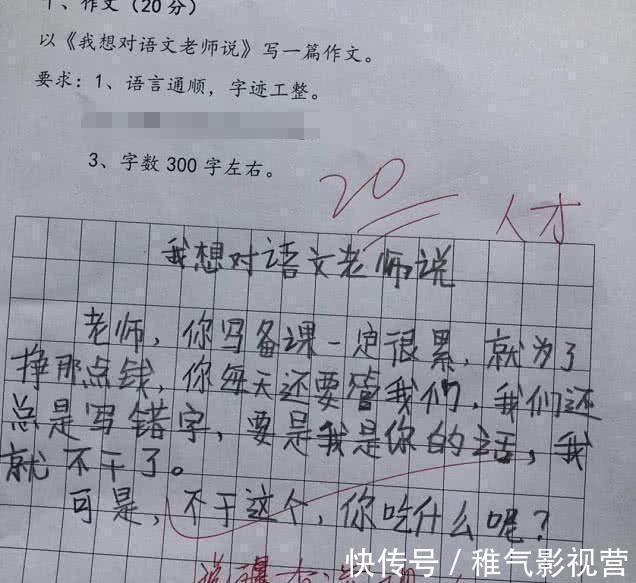 作文(20分)
以《我想对语文老师说》写一篇作文。
要求:1、语言通顺,字迹工整。
3、字数300字左右。
20
人才
我想对语文老师说
老师,你写备课一定很累,就为了
挣那点钱,你每天还要管我们,我们还
总是写错字,要是我是你的话,我
就不干了。
可是,不干这个,你吃什么呢?
快传号/稚气影视营